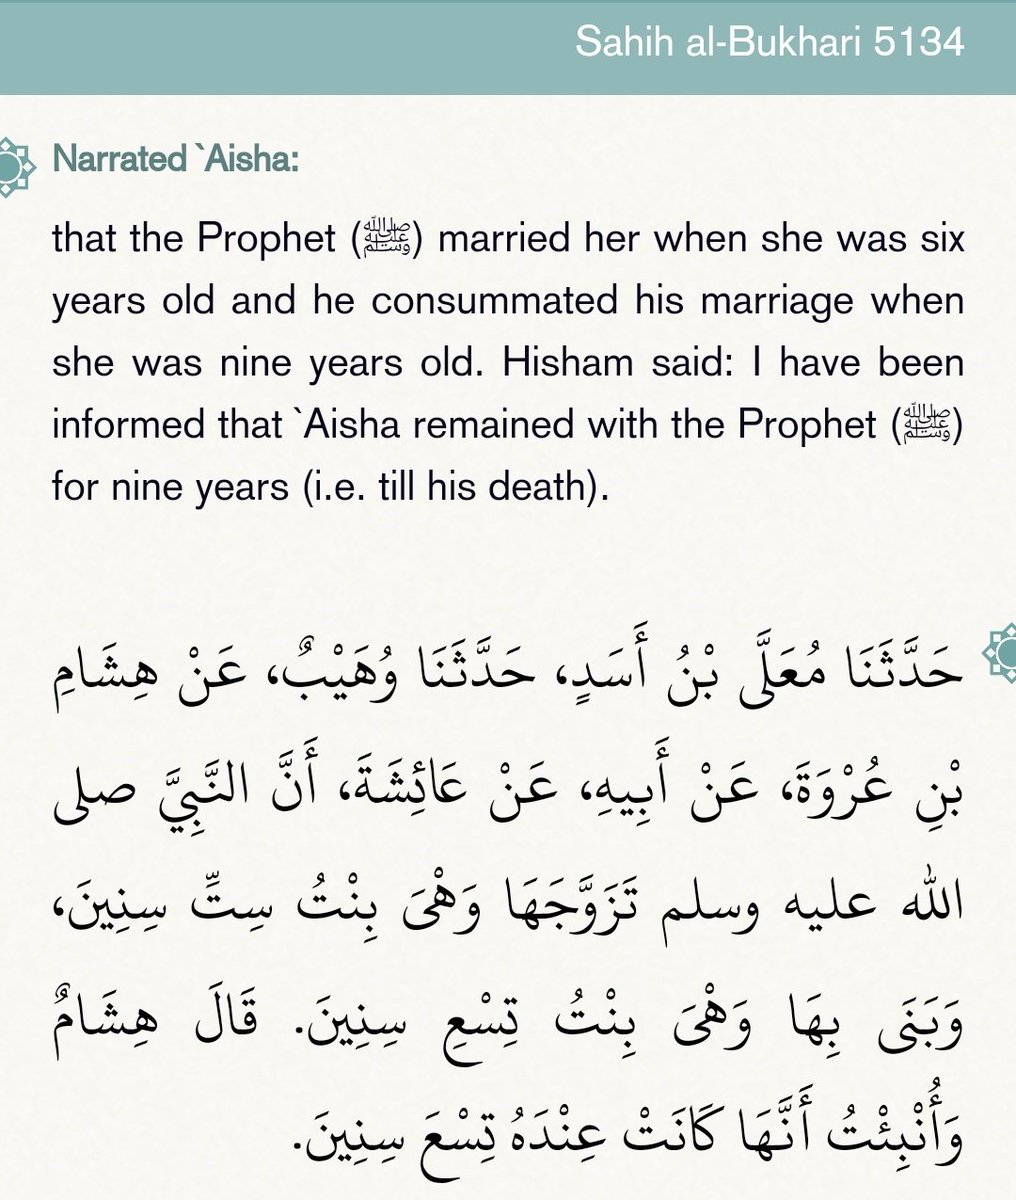 Sahih al-Bukhari 5134
Narrated `Aisha:
that the Prophet (ﷺ) married her when she was six
years old and he consummated his marriage when
she was nine years old. Hisham said: I have been
informed that `Aisha remained with the Prophet (ﷺ)
for nine years (i.e. till his death).
حَدَّثَنَا مُعَلَّى بْنُ أَسَدٍ، حَدَّثَنَا وُهَيْبٌ، عَنْ هِشَامِ
بْنِ عُرْوَةَ، عَنْ أَبِيهِ، عَنْ عَائِشَةَ، أَنَّ النَّبِيَّ صلى
الله عليه وسلم تَزَوَّجَهَا وَهْىَ بِنْتُ سِتِّ سِنِينَ،
وَبَنَى بِهَا وَهْىَ بِنْتُ تِسْعِ سِنِينَ. قَالَ هِشَامٌ
وَأُنْبِئْتُ أَنَّهَا كَانَتْ عِنْدَهُ تِسْعَ سِنِينَ.